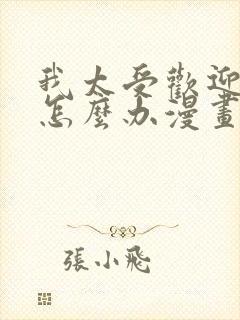 我太受歡迎
怎麼办漫畫
張小飛